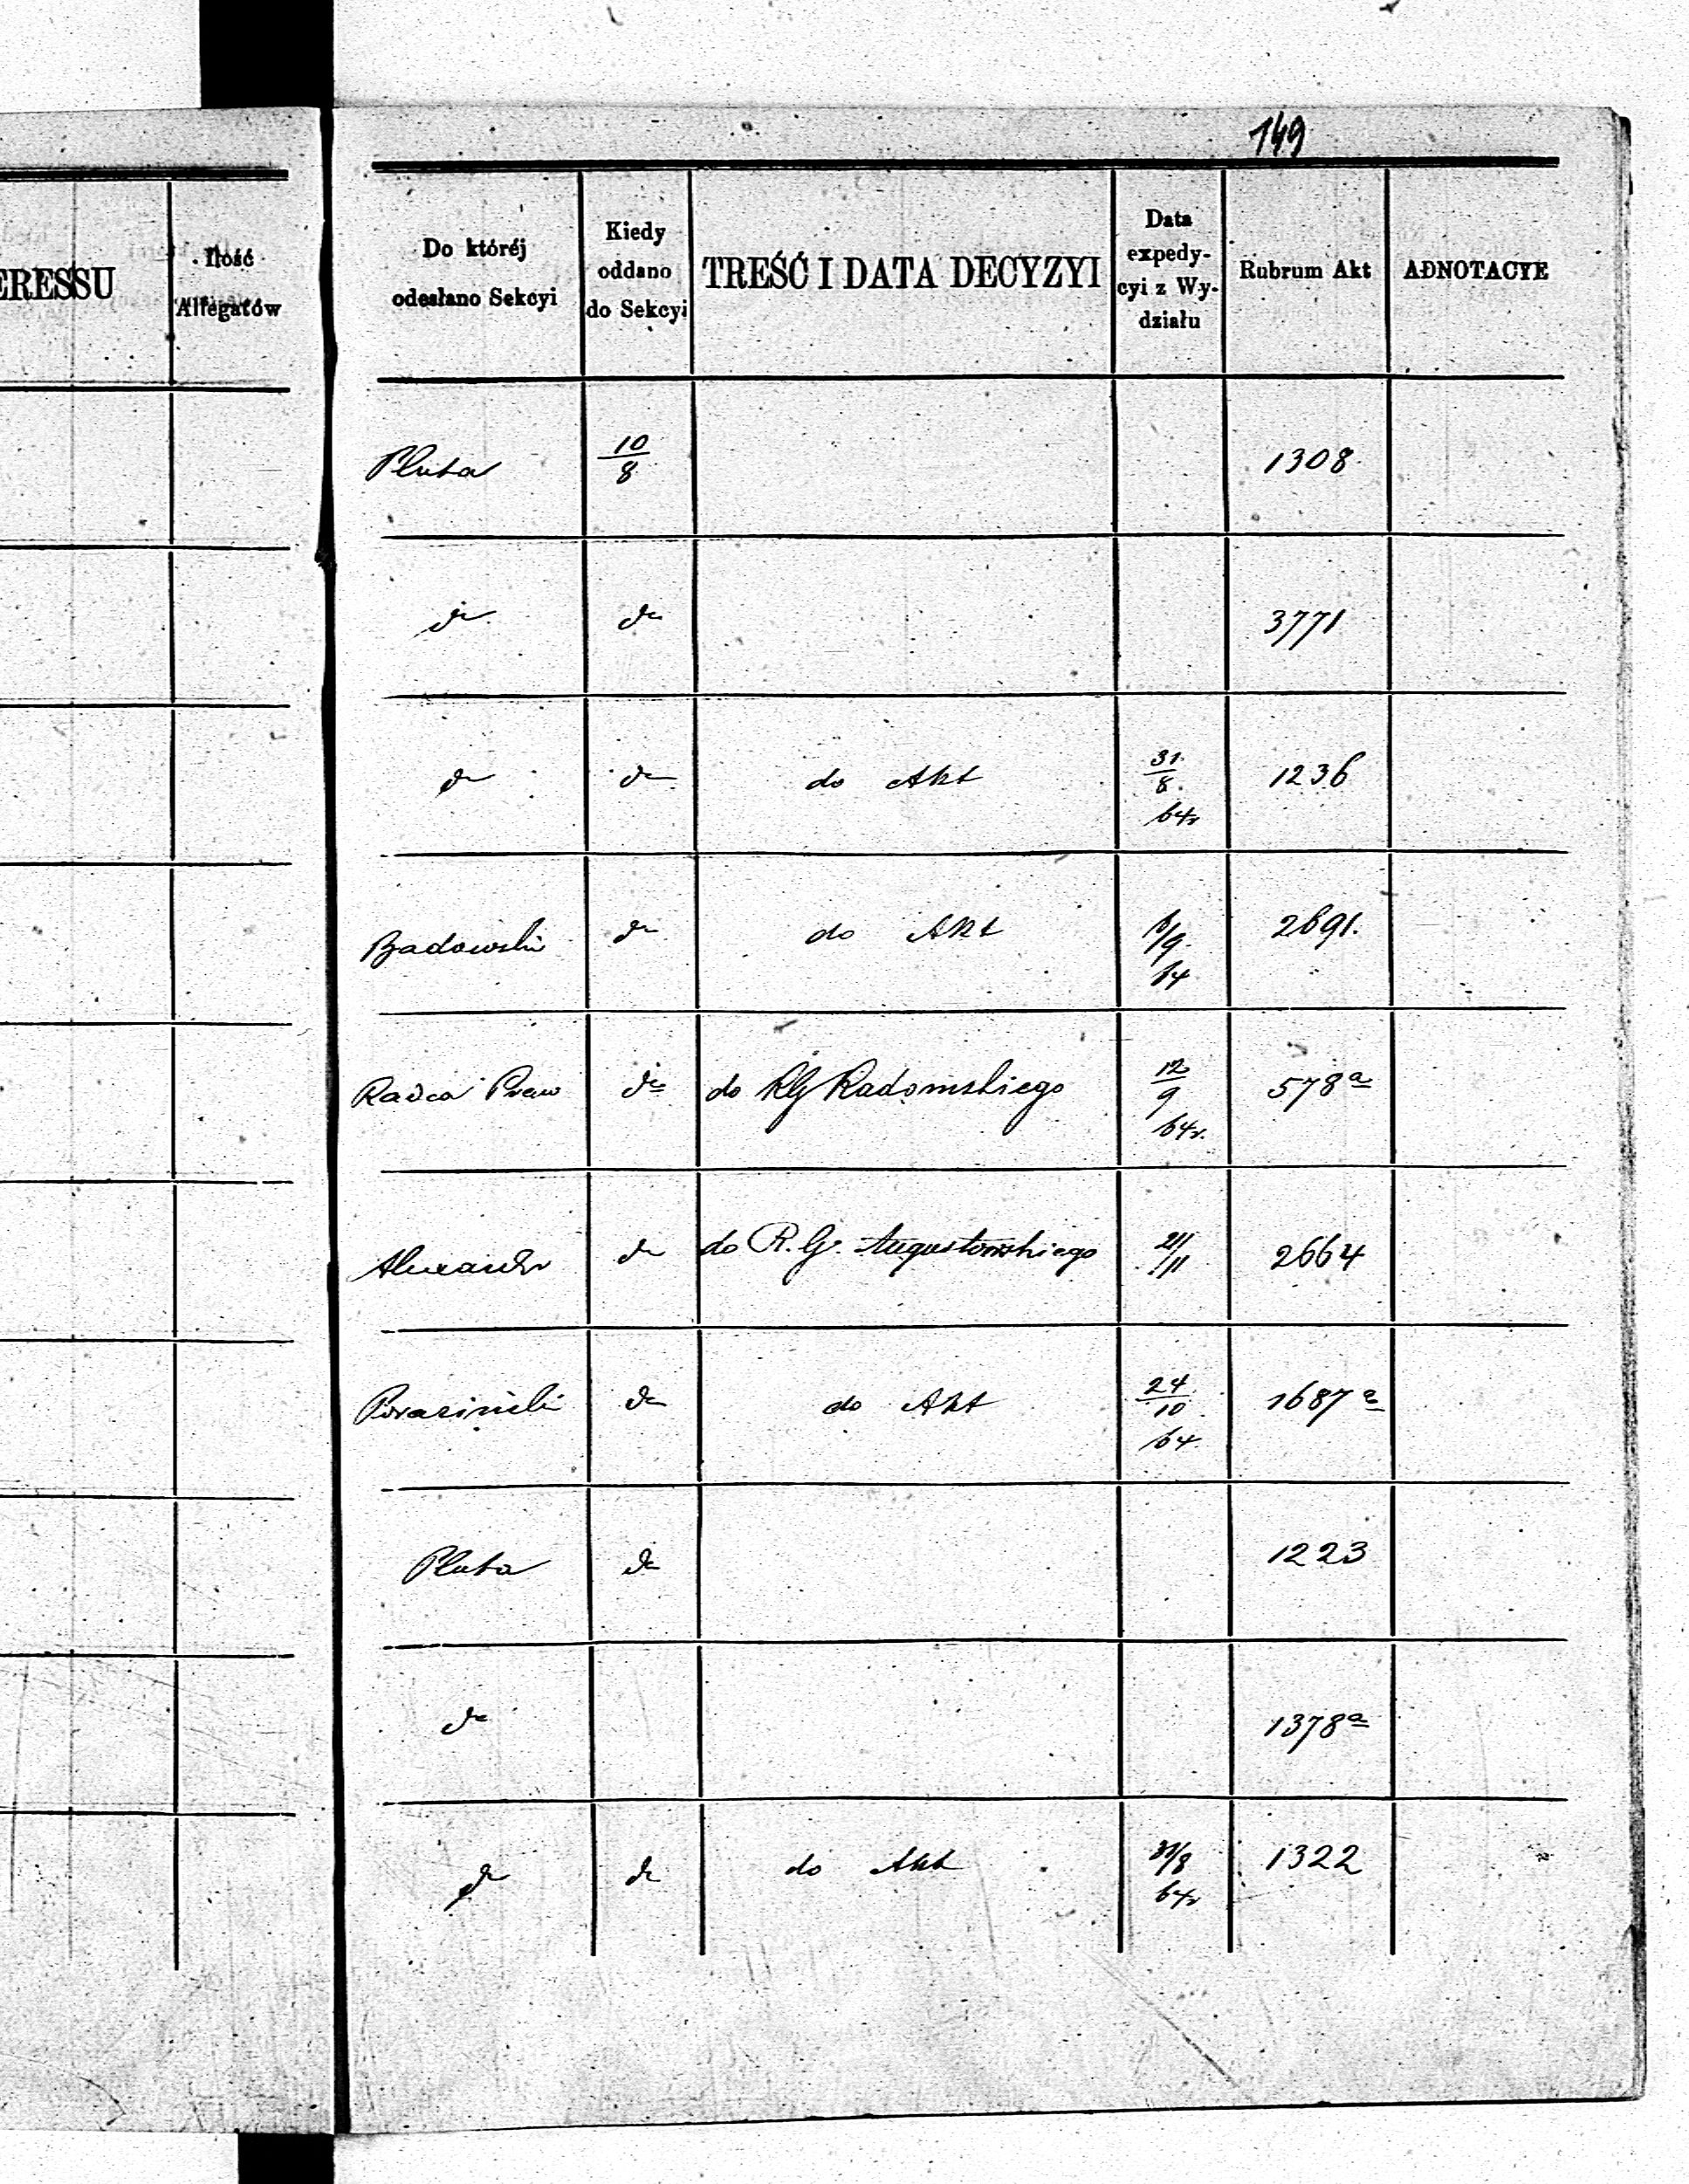 149
ERESSU
Ilość
Allegatów
Do któréj
odesłano Sekcyi
Kiedy
oddano
do Sekcyi
TREŚĆ I DATA DECYZYI
Data
expedy-
cyi z Wy-
działu
Rubrum Akt
ADNOTACYE
Pluta 10/8 1308
do do 3771
do do do Akt 31/8 64r 1236
Badowski do do Akt 6/9 64 2691.
Radca Praw do do RG Radomskiego 12/9 64r. 578a
Alexandr do do R. G. Augustowskiego 21/11 2664
do do Akt 24/10 64 1687a
Pluta do 1223
do 1378a
do do do Akt 31/8 64r 1322